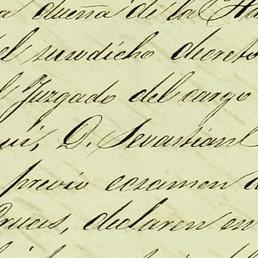 dueña de la Ha
el susodicho decreto
Juzgado del cargo
D. Sevastian
previo ecsamen
Cruces, declaren en